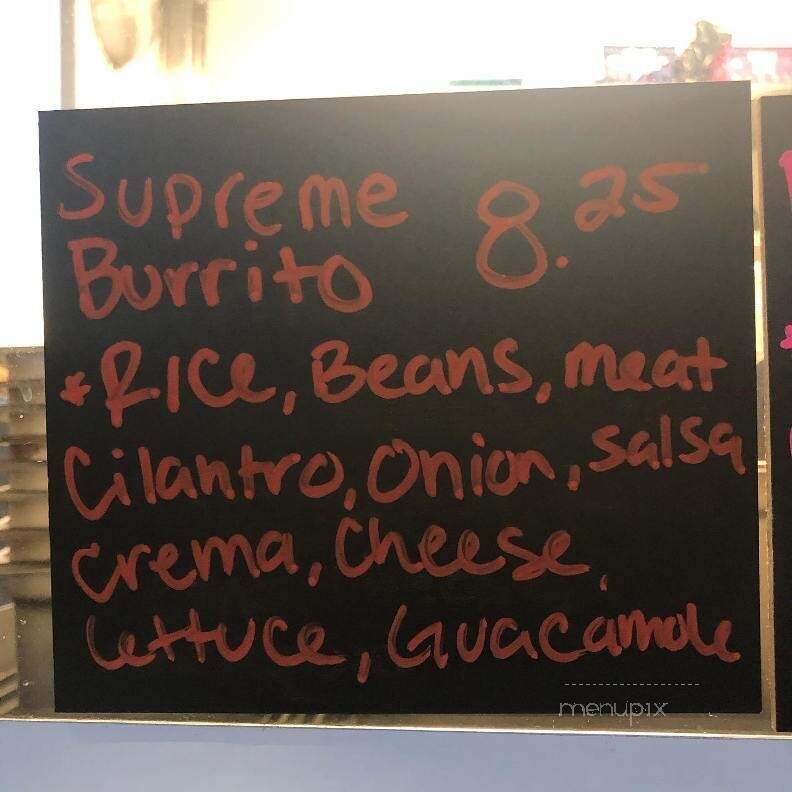 Supreme 8.25
Burrito
*Rice, Beans, meat
Cilantro, Onion, salsa
crema, Cheese,
Lettuce, Guacamole
menupix